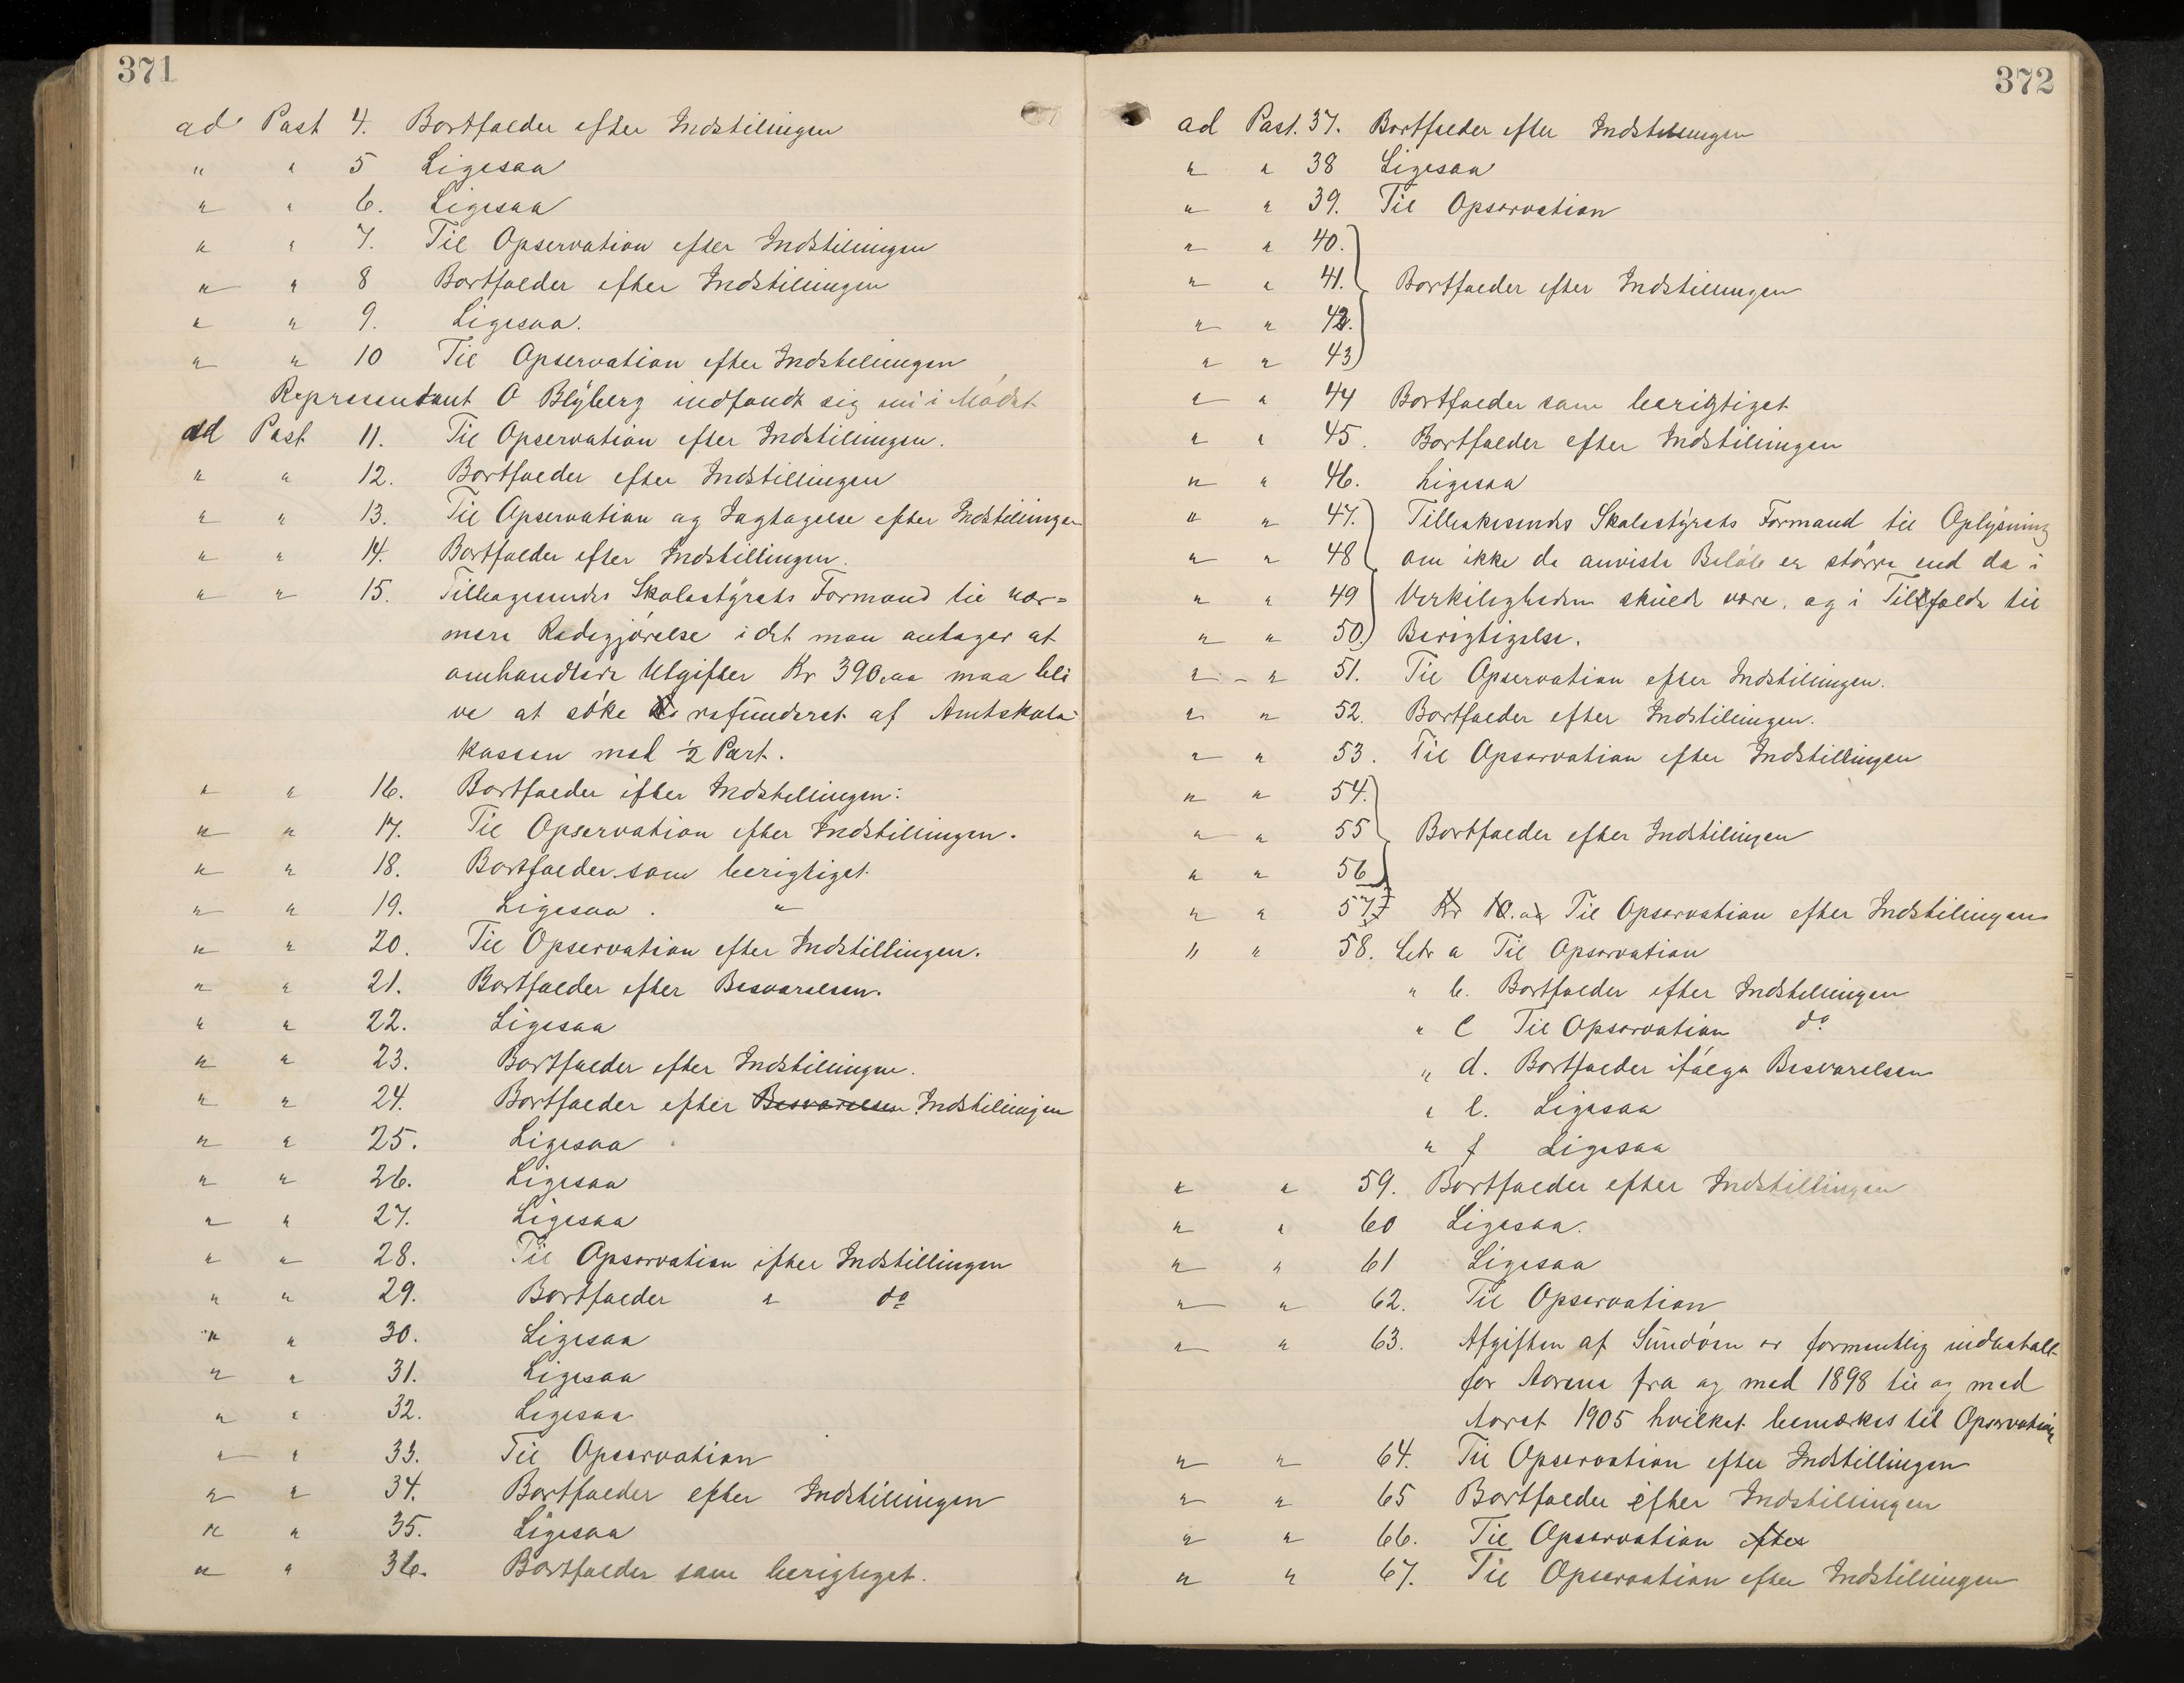 371
ad Post 4. Bortfalder efter Indstilingen
" " 5 Ligesaa
" " 6. Ligesaa
" " 7. Til Opservation efter Indstillingen
" " 8 Bortfalder efter Indstillingen
" " 9. Ligesaa.
" " 10 Til Opservation efter Indstillingen
Representant O Blÿberg indfandt sig nu i Mødet
ad Post 11. Til Opservation efter Indstillingen.
" " 12. Bortfalder efter Indstillingen
" " 13. Til Opservation og Iagtagelse efter Indstillingen
" " 14. Bortfalder efter Indstillingen.
" " 15. Tilbagesendes Skolestÿrets Formand til nær=
mere Redegjørelse idet man antager at
omhandlede Utgifter Kr 390,00 maa bli
ve at søke refunderet af Amtskole
kassen med ½ Part.
" " 16. Bortfalder efter Indstillingen.
" " 17. Til Opservation efter Indstillingen.
" " 18. Bortfalder som berigtiget
" " 19. Ligesaa. "
" " 20. Til Opservation efter Indstillingen.
" " 21. Bortfalder efter Besvarelsen.
" " 22. Ligesaa
" " 23. Bortfalder efter Indstillingen.
" " 24. Bortfalder efter Besvarelsen Indstillingen
" " 25. Ligesaa
" " 26. Ligesaa
" " 27. Ligesaa
" " 28. Til Opservation efter Indstillingen
" " 29. Bortfalder " do
" " 30. Ligesaa
" " 31. Ligesaa
" " 32. Ligesaa
" " 33. Til Opservation
" " 34. Bortfalder efter Indstillingen
" " 35. Ligesaa
" " 36. Bortfalder som berigtiget.
372
ad Post. 37. Bortfalder efter Indstillingen
" " 38 Ligesaa
" " 39. Til Opservation
" " 40.
" " 41. Bortfalder efter Indstillingen
" " 42.
" " 43
" " 44 Bortfalder som berigtiget
" " 45. Bortfalder efter Indstillingen
" " 46. Ligesaa
" " 47. Tilbakesendes Skolestÿrets Formand til Oplÿsning
" " 48 om ikke de anviste Beløb er større end de i
" " 49 Verkeligheden skulde være, og i Tilfælde til
" " 50. Berigtigelse.
" " 51. Til Opservation efter Indstillingen.
" " 52. Bortfalder efter Indstillingen.
" " 53. Til Opservation efter Indstillingen
" " 54.
" " 55 Bortfalder efter Indstilingen
" " 56
" " 57 Kr 10.00 Til Opservation efter Indstilingen
" " 58. Litr a Til Opservation
" b. Bortfalder efter Indstillingen
" c Til Opservation do
" d. Bortfalder ifølge Besvarelsen
" e. Ligesaa
" f Ligesaa
" " 59. Bortfalder efter Indstillingen
" " 60 Ligesaa.
" " 61 Ligesaa
" " 62. Til Opservation
" " 63. Afgiften af Sundøen er formentlig indbetalt
for Aarene fra og med 1898 til og med
Aaret 1905 hvilket bemærkes til Opservation
" " 64. Til Opservation efter Indstillingen
" " 65 Bortfalder efter Indstillingen
" " 66. Til Opservation efter
" " 67. Til Opservation efter Indstillingen